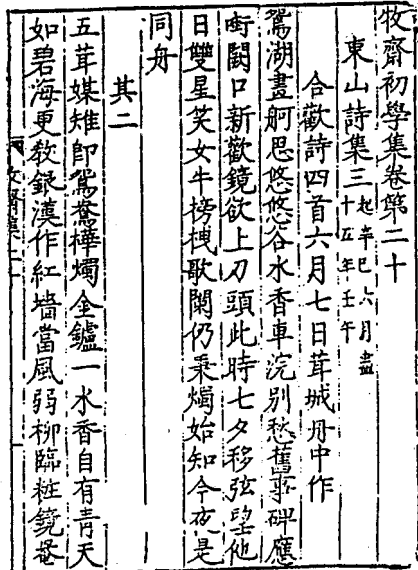 牧齋初學集卷第二十
東山詩集三起辛巳六月盡十五年壬午
合歡詩四首六月七日茸城舟中作
鴛湖畫舸思悠悠谷水香車浣別愁舊事碑應
銜闕口新歡鏡欲上刀頭此時七夕移弦望他
日雙星笑女牛榜栧歌闌仍秉燭始知今夜是
同舟
其二
五茸媒雉即鴛鴦樺燭金鑪一水香自有青天
如碧海更教銀漢作紅墻當風弱柳臨粧鏡罨